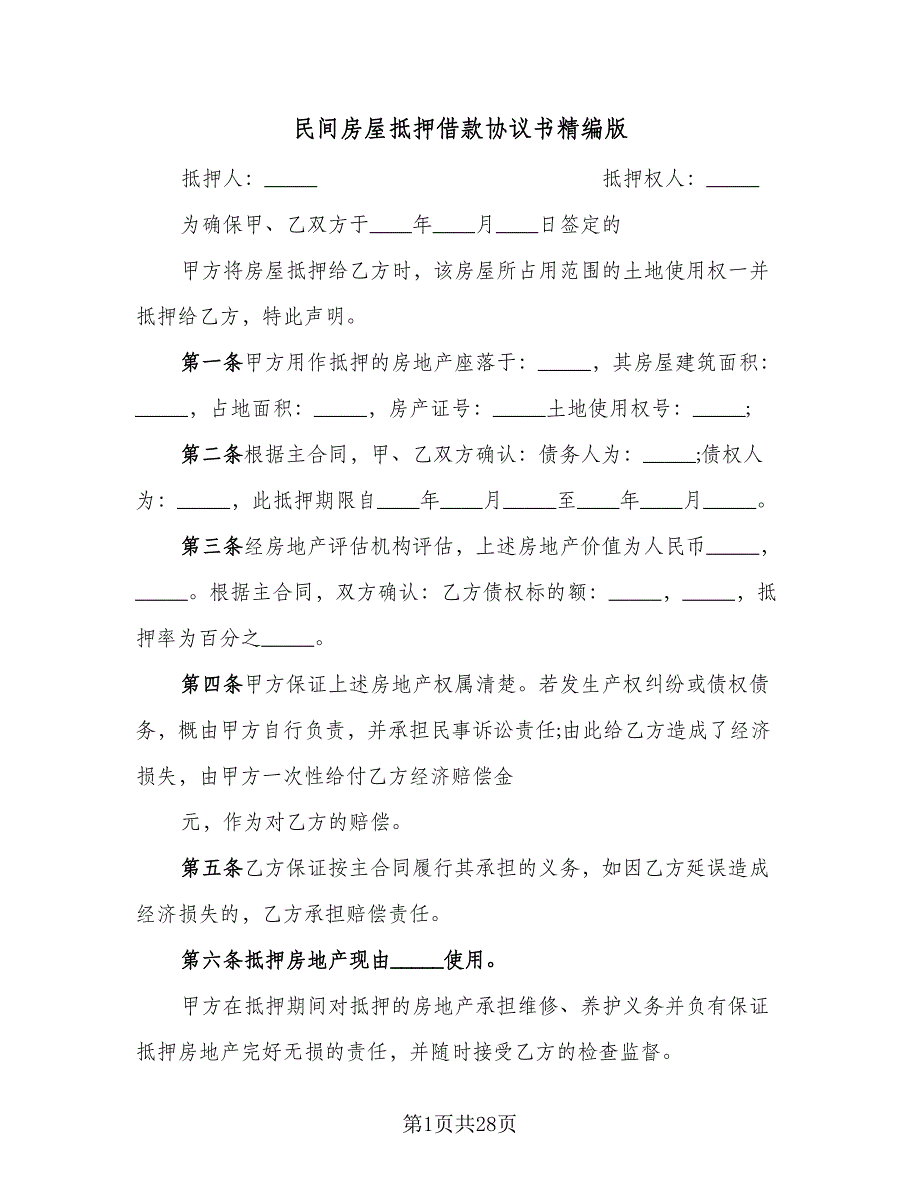 民间房屋抵押借款协议书精编版
抵押人：_____ 抵押权人：_____
为确保甲、乙双方于____年____月____日签定的
甲方将房屋抵押给乙方时，该房屋所占用范围的土地使用权一并
抵押给乙方，特此声明。
第一条甲方用作抵押的房地产座落于：_____，其房屋建筑面积：
_____，占地面积：_____，房产证号：_____土地使用权号：_____;
第二条根据主合同，甲、乙双方确认：债务人为：_____;债权人
为：_____，此抵押期限自____年____月_____至____年____月_____。
第三条经房地产评估机构评估，上述房地产价值为人民币_____，
_____。根据主合同，双方确认：乙方债权标的额：_____，_____，抵
押率为百分之_____。
第四条甲方保证上述房地产权属清楚。若发生产权纠纷或债权债
务，概由甲方自行负责，并承担民事诉讼责任;由此给乙方造成了经济
损失，由甲方一次性给付乙方经济赔偿金
元，作为对乙方的赔偿。
第五条乙方保证按主合同履行其承担的义务，如因乙方延误造成
经济损失的，乙方承担赔偿责任。
第六条抵押房地产现由_____使用。
甲方在抵押期间对抵押的房地产承担维修、养护义务并负有保证
抵押房地产完好无损的责任，并随时接受乙方的检查监督。
第1页共28页